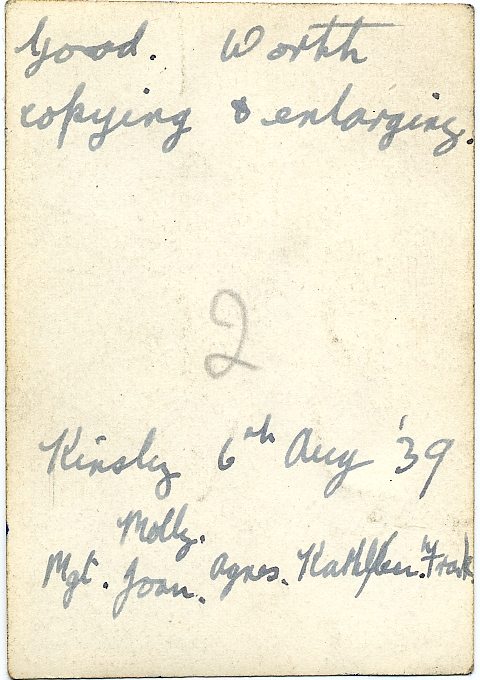 Good. Worth
copying & enlarging.
2
Kinsly 6th Aug '39
Molly.
Mgt. Joan. Agnes. Kathleen. Frank